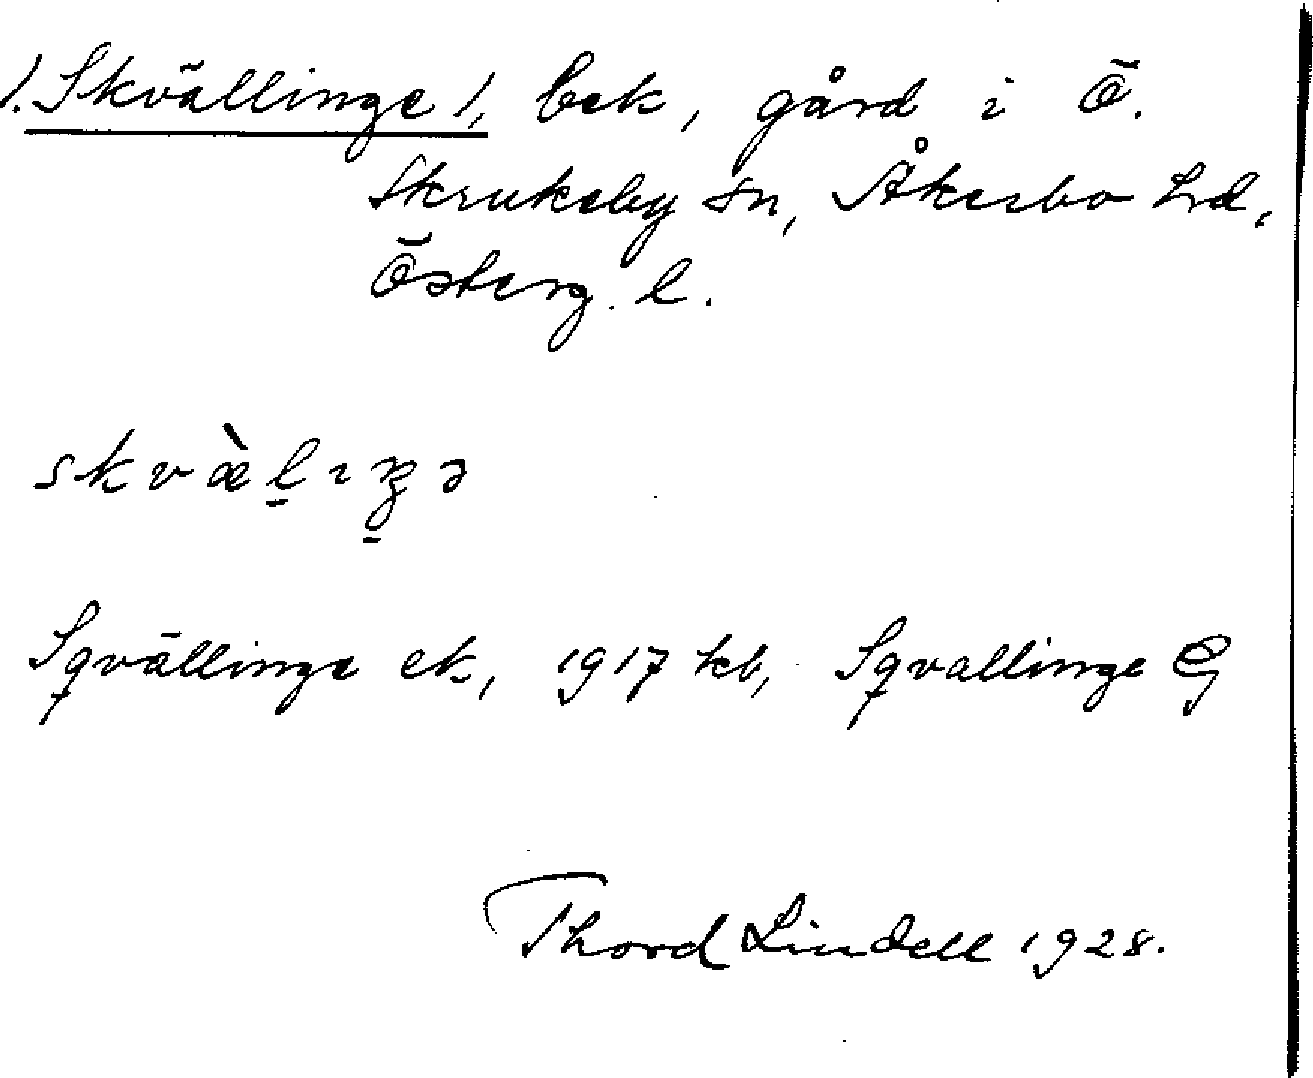 1. Skvällinge 1, bek, gård i Ö.
Skrukeby sn, Åkerbo hd,
Österg. l.
skvæ̀l̠ıŋ̠ə
Sqvällinge ek, 1917 kb, Sqvallinge G
Thord Lindell 1928.